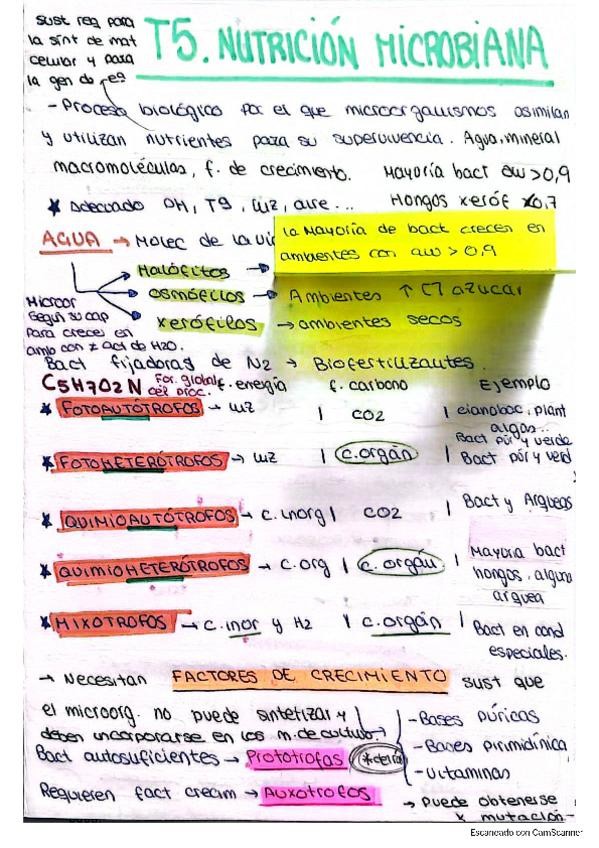 sust req para
la sínt de mat
celular y para
la gen de eª
T5. NUTRICIÓN MICROBIANA
- Proceso biológico por el que microorganismos asimilan
y utilizan nutrientes para su supervivencia. Agua, mineral
macromoléculas, f. de crecimiento. Mayoría bact aw >0,9
* Adecuado pH, Tª, luz, aire... Hongos xeróf >0,7
AGUA → Molec de la
la Mayoría de bact crecen en
ambientes con aw > 0,9
Halófilos →
osmófilos → Ambientes ↑ [ ] azucar
xerófilos → ambientes secos
Microor
según su cap
para crecer en
amb con ≠ act de H2O.
Bact fijadoras de N2 → Biofertilizantes.
C5H7O2N For. global cél proc. f. energía f. carbono Ejemplo
* FOTOAUTÓTROFOS → luz | CO2 | cianobac, plant
algas...
* FOTOHETERÓTROFOS → luz | c. orgán | Bact púr y verde
Bact púr y verd
* QUIMIOAUTÓTROFOS → c. inorg | CO2 | Bact y Arqueas
* QUIMIOHETERÓTROFOS → c. org | c. orgán | Mayoría bact
hongos, alguna
arquea
* MIXOTROFOS → c. inor y H2 | c. orgán | Bact en cond
especiales.
→ Necesitan FACTORES DE CRECIMIENTO sust que
el microorg. no puede sintetizar y
deben incorporarse en los m. de cultivo →
- Bases púricas
- Bases pirimidínica
- vitaminas
Bact autosuficientes → Prototrofas
Requieren fact crecim → Auxotrofos
→ Puede obtenerse
x mutación -
Escaneado con CamScanner